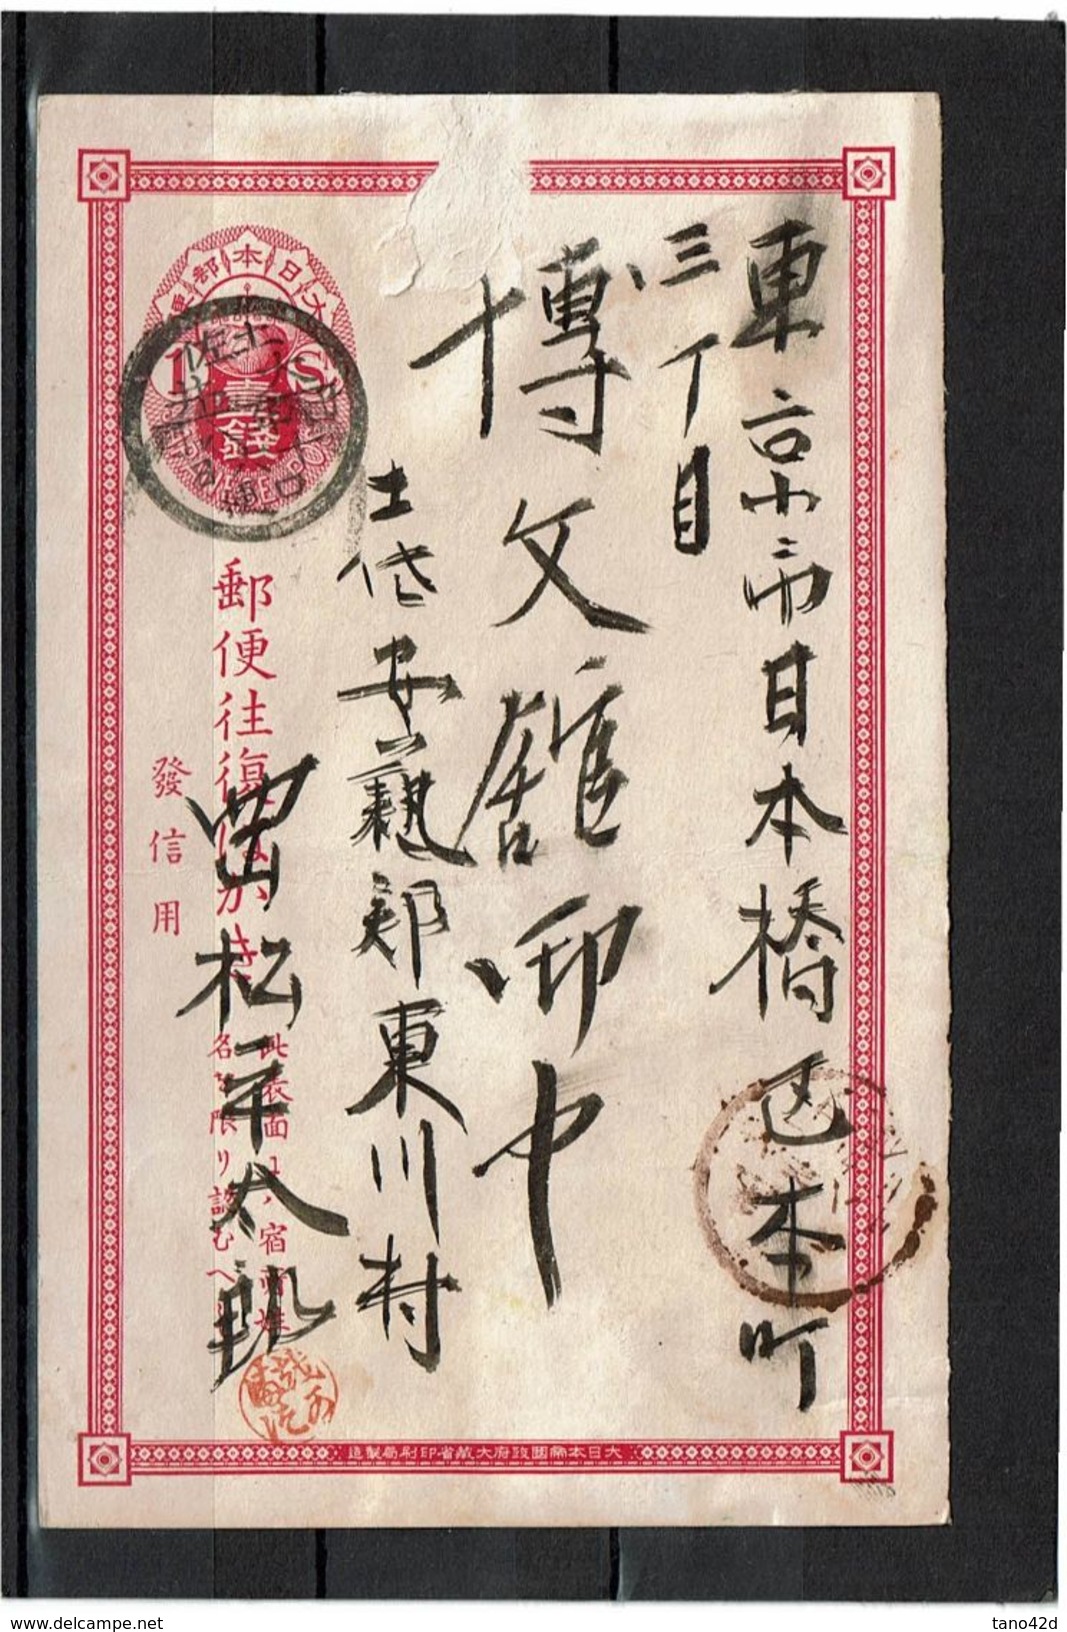 東京市日本橋区本町
三丁目
博文館御中
土佐安藝郡東川村
岡松平太郎
大日本郵便
1 S
壹錢
郵便往復はがき
發信用
此表面ニハ宿所姓
名を限り認むへし
大日本帝國政府大藏省印刷局製造
tano42d